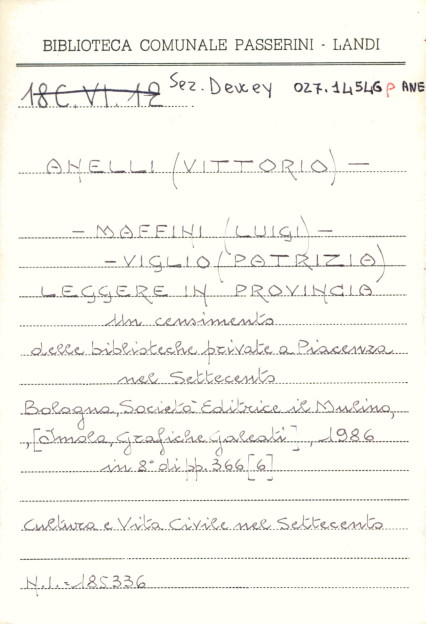 BIBLIOTECA COMUNALE PASSERINI - LANDI
18C.VI.12 Sez. Dewey 027.14546 P ANE
ANELLI (VITTORIO) -
- MAFFINI (LUIGI) -
- VIGLIO (PATRIZIA)
LEGGERE IN PROVINCIA
Un censimento
delle biblioteche private a Piacenza
nel Settecento
Bologna, Società Editrice il Mulino,
, [Imola, Grafiche Galeati], 1986
in 8° di pp. 366 [6]
Cultura e Vita Civile nel Settecento
N.I. = 185336